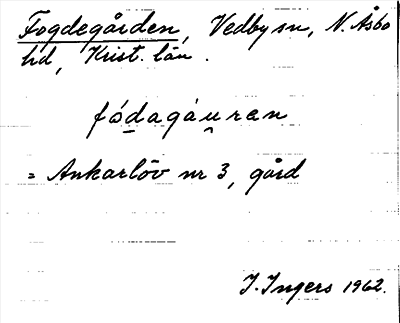 Fogdegården, Vedby sn, N. Åsbo
hd, Krist. län.
fó̱dagáu̯ran
= Ankarlöv nr 3, gård
I. Ingers 1962.